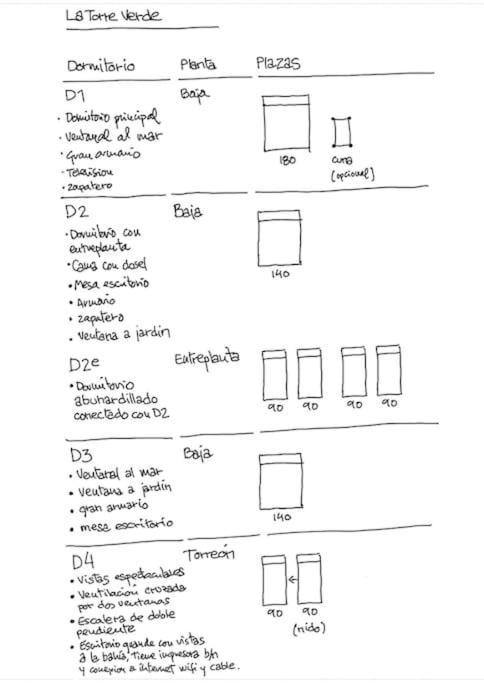 La Torre Verde
Dormitorio Planta Plazas
D1 Baja
• Dormitorio principal
• Ventanal al mar
• Gran armario
• Television
• zapatero
180 cuna
(opcional)
D2 Baja
• Dormitorio con
entreplanta
• Cama con dosel
• Mesa escritorio
• Armario
• zapatero
• ventana a jardín
140
D2e Entreplanta
• Dormitorio
abuhardillado
conectado con D2
90 90 90 90
D3 Baja
• Ventanal al mar
• ventana a jardín
• gran armario
• mesa escritorio
140
D4 Torreón
• Vistas espectaculares
• Ventilación cruzada
por dos ventanas
• Escalera de doble
pendiente
• Escritorio grande con vistas
a la bahía, tiene impresora b/n
y conexion a internet wifi y cable.
90 90
(nido)